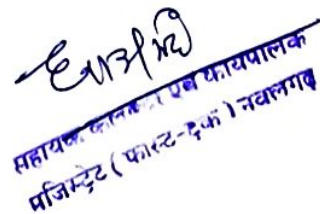 सहायक कलक्टर एवं कार्यपालक
मजिस्ट्रेट (फास्ट-ट्रैक) नवलगढ़